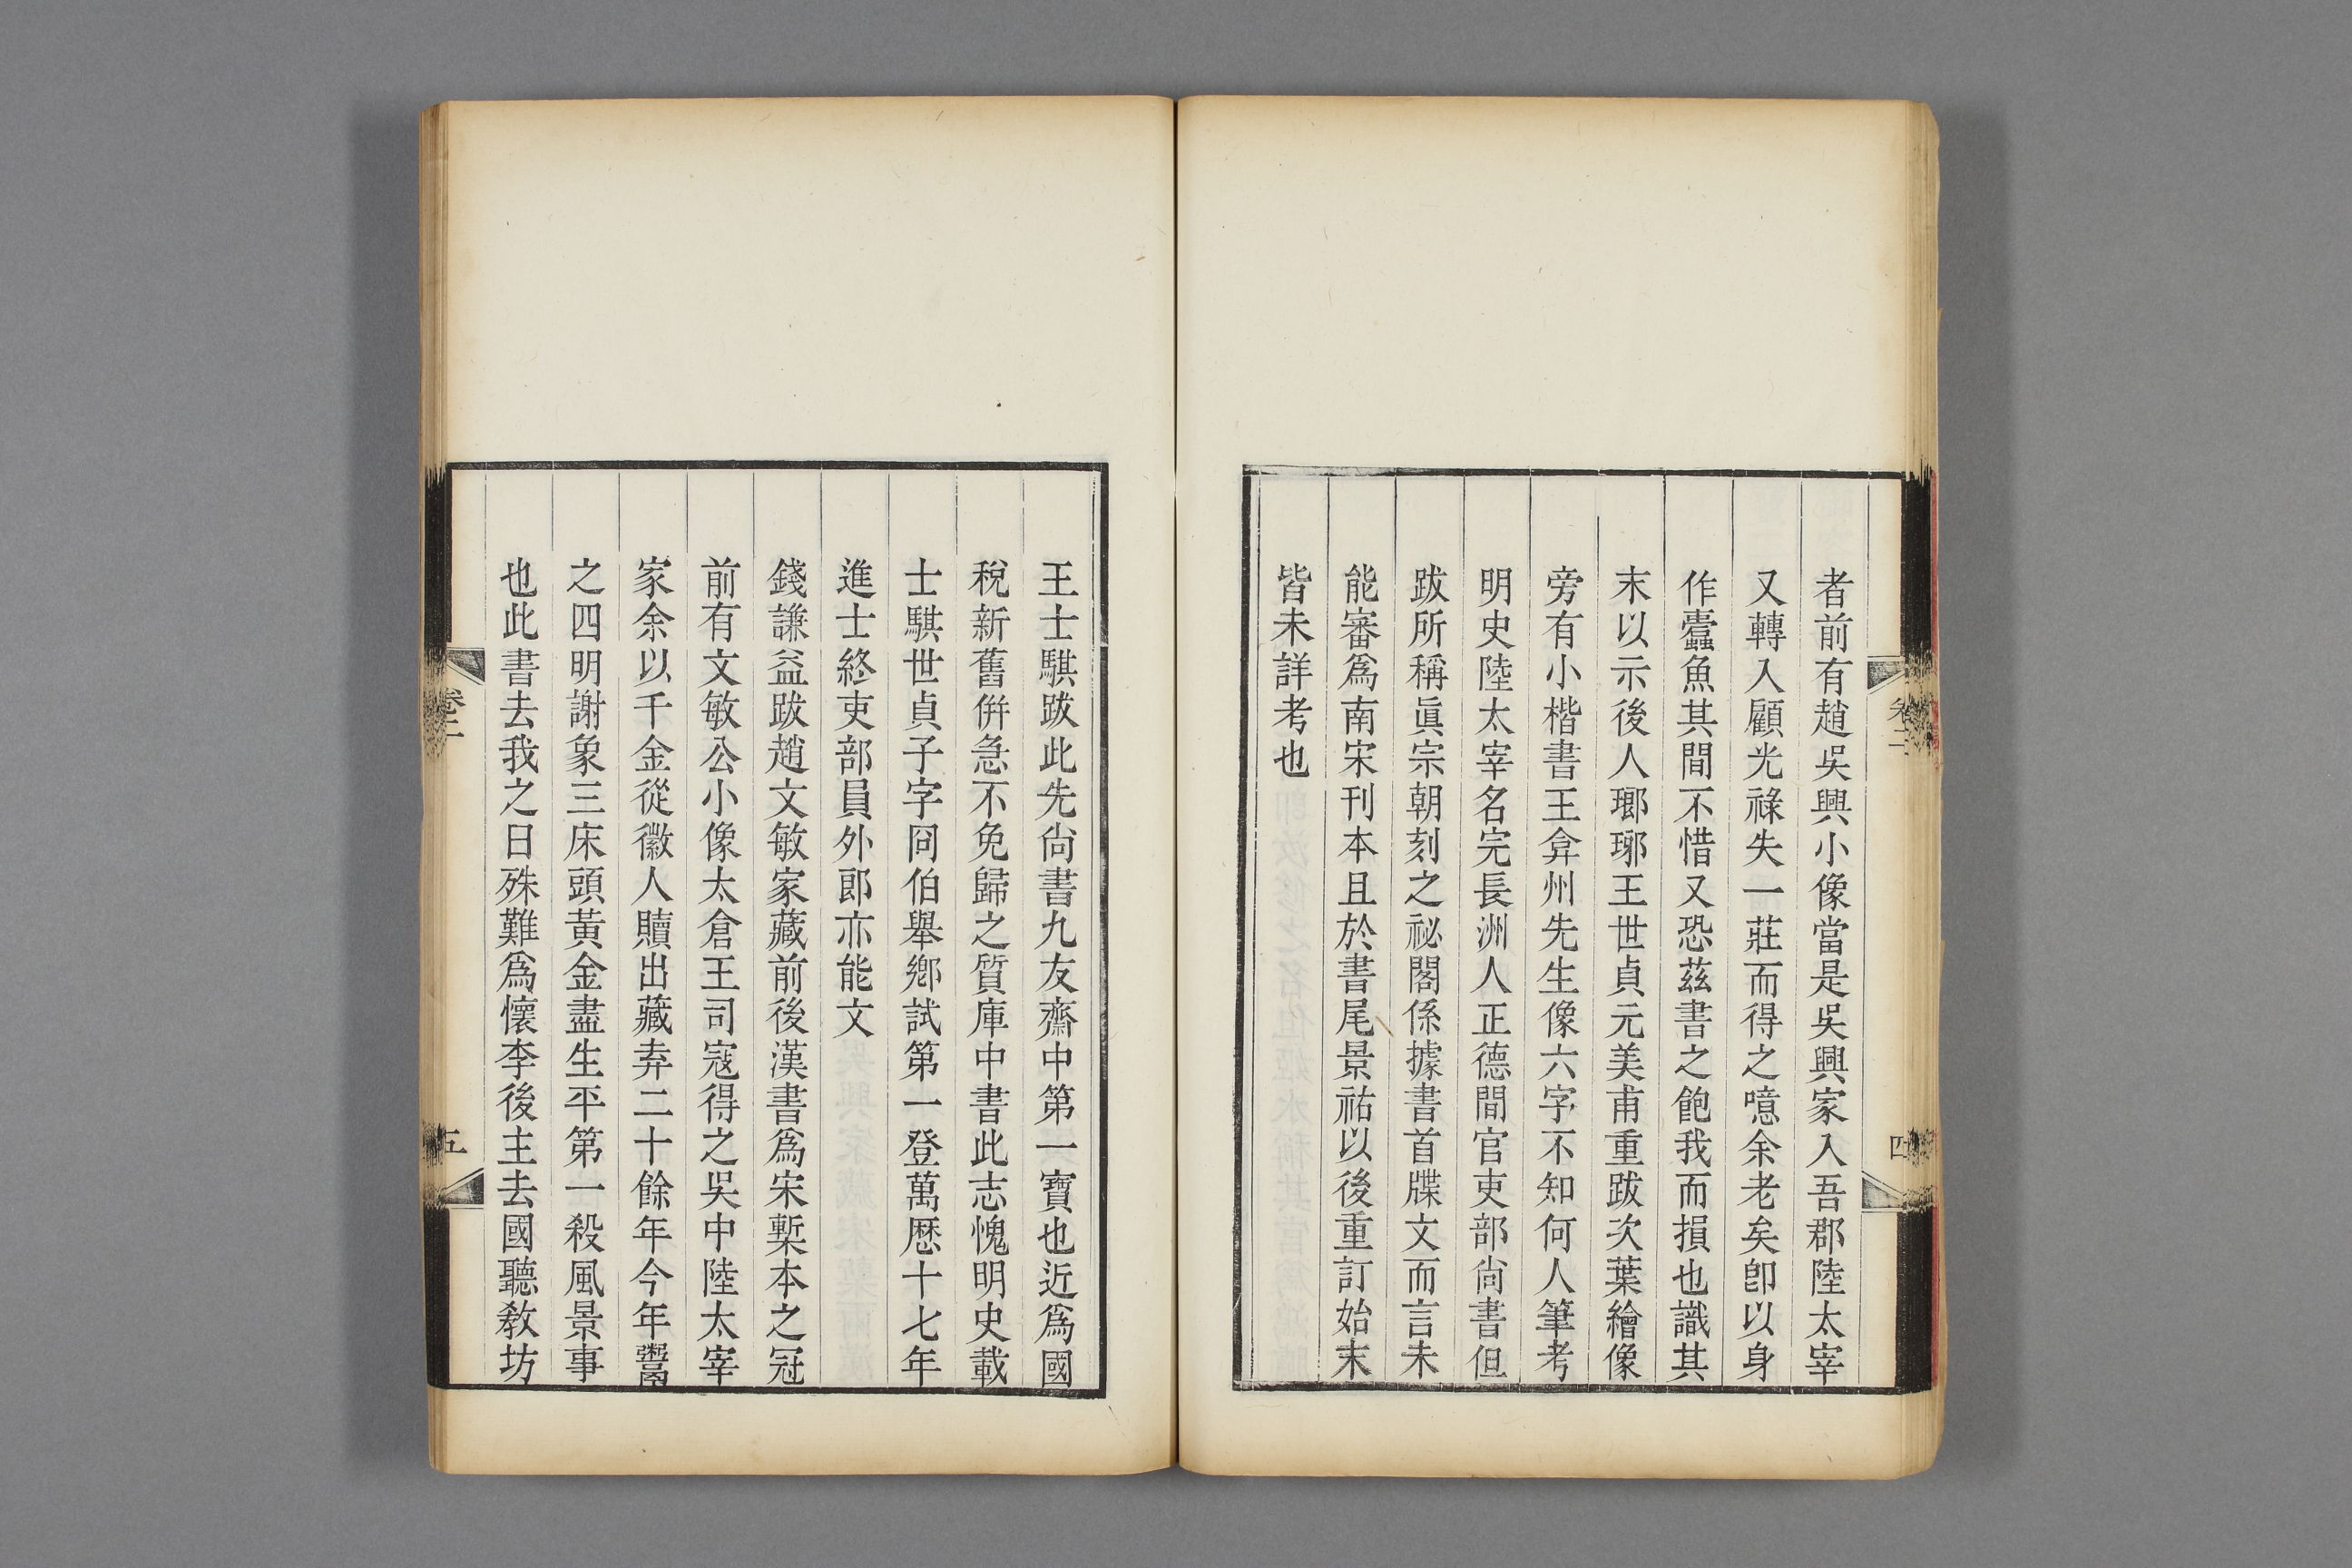 者前有趙吳興小像當是吳興家入吾郡陸太宰
又轉入顧光祿失一莊而得之噫余老矣卽以身
作蠹魚其間不惜又恐茲書之飽我而損也識其
末以示後人瑯琊王世貞元美甫重跋次葉繪像
旁有小楷書王弇州先生像六字不知何人筆考
明史陸太宰名完長洲人正德間官吏部尙書但
跋所稱眞宗朝刻之祕閣係據書首牒文而言未
能審爲南宋刊本且於書尾景祐以後重訂始末
皆未詳考也
卷二
四
王士騏跋此先尙書九友齋中第一寶也近爲國
稅新舊倂急不免歸之質庫中書此志愧明史載
士騏世貞子字冏伯舉鄉試第一登萬厯十七年
進士終吏部員外郎亦能文
錢謙益跋趙文敏家藏前後漢書爲宋槧本之冠
前有文敏公小像太倉王司寇得之吳中陸太宰
家余以千金從徽人贖出藏弆二十餘年今年鬻
之四明謝象三床頭黃金盡生平第一殺風景事
也此書去我之日殊難爲懷李後主去國聽敎坊
卷二
五